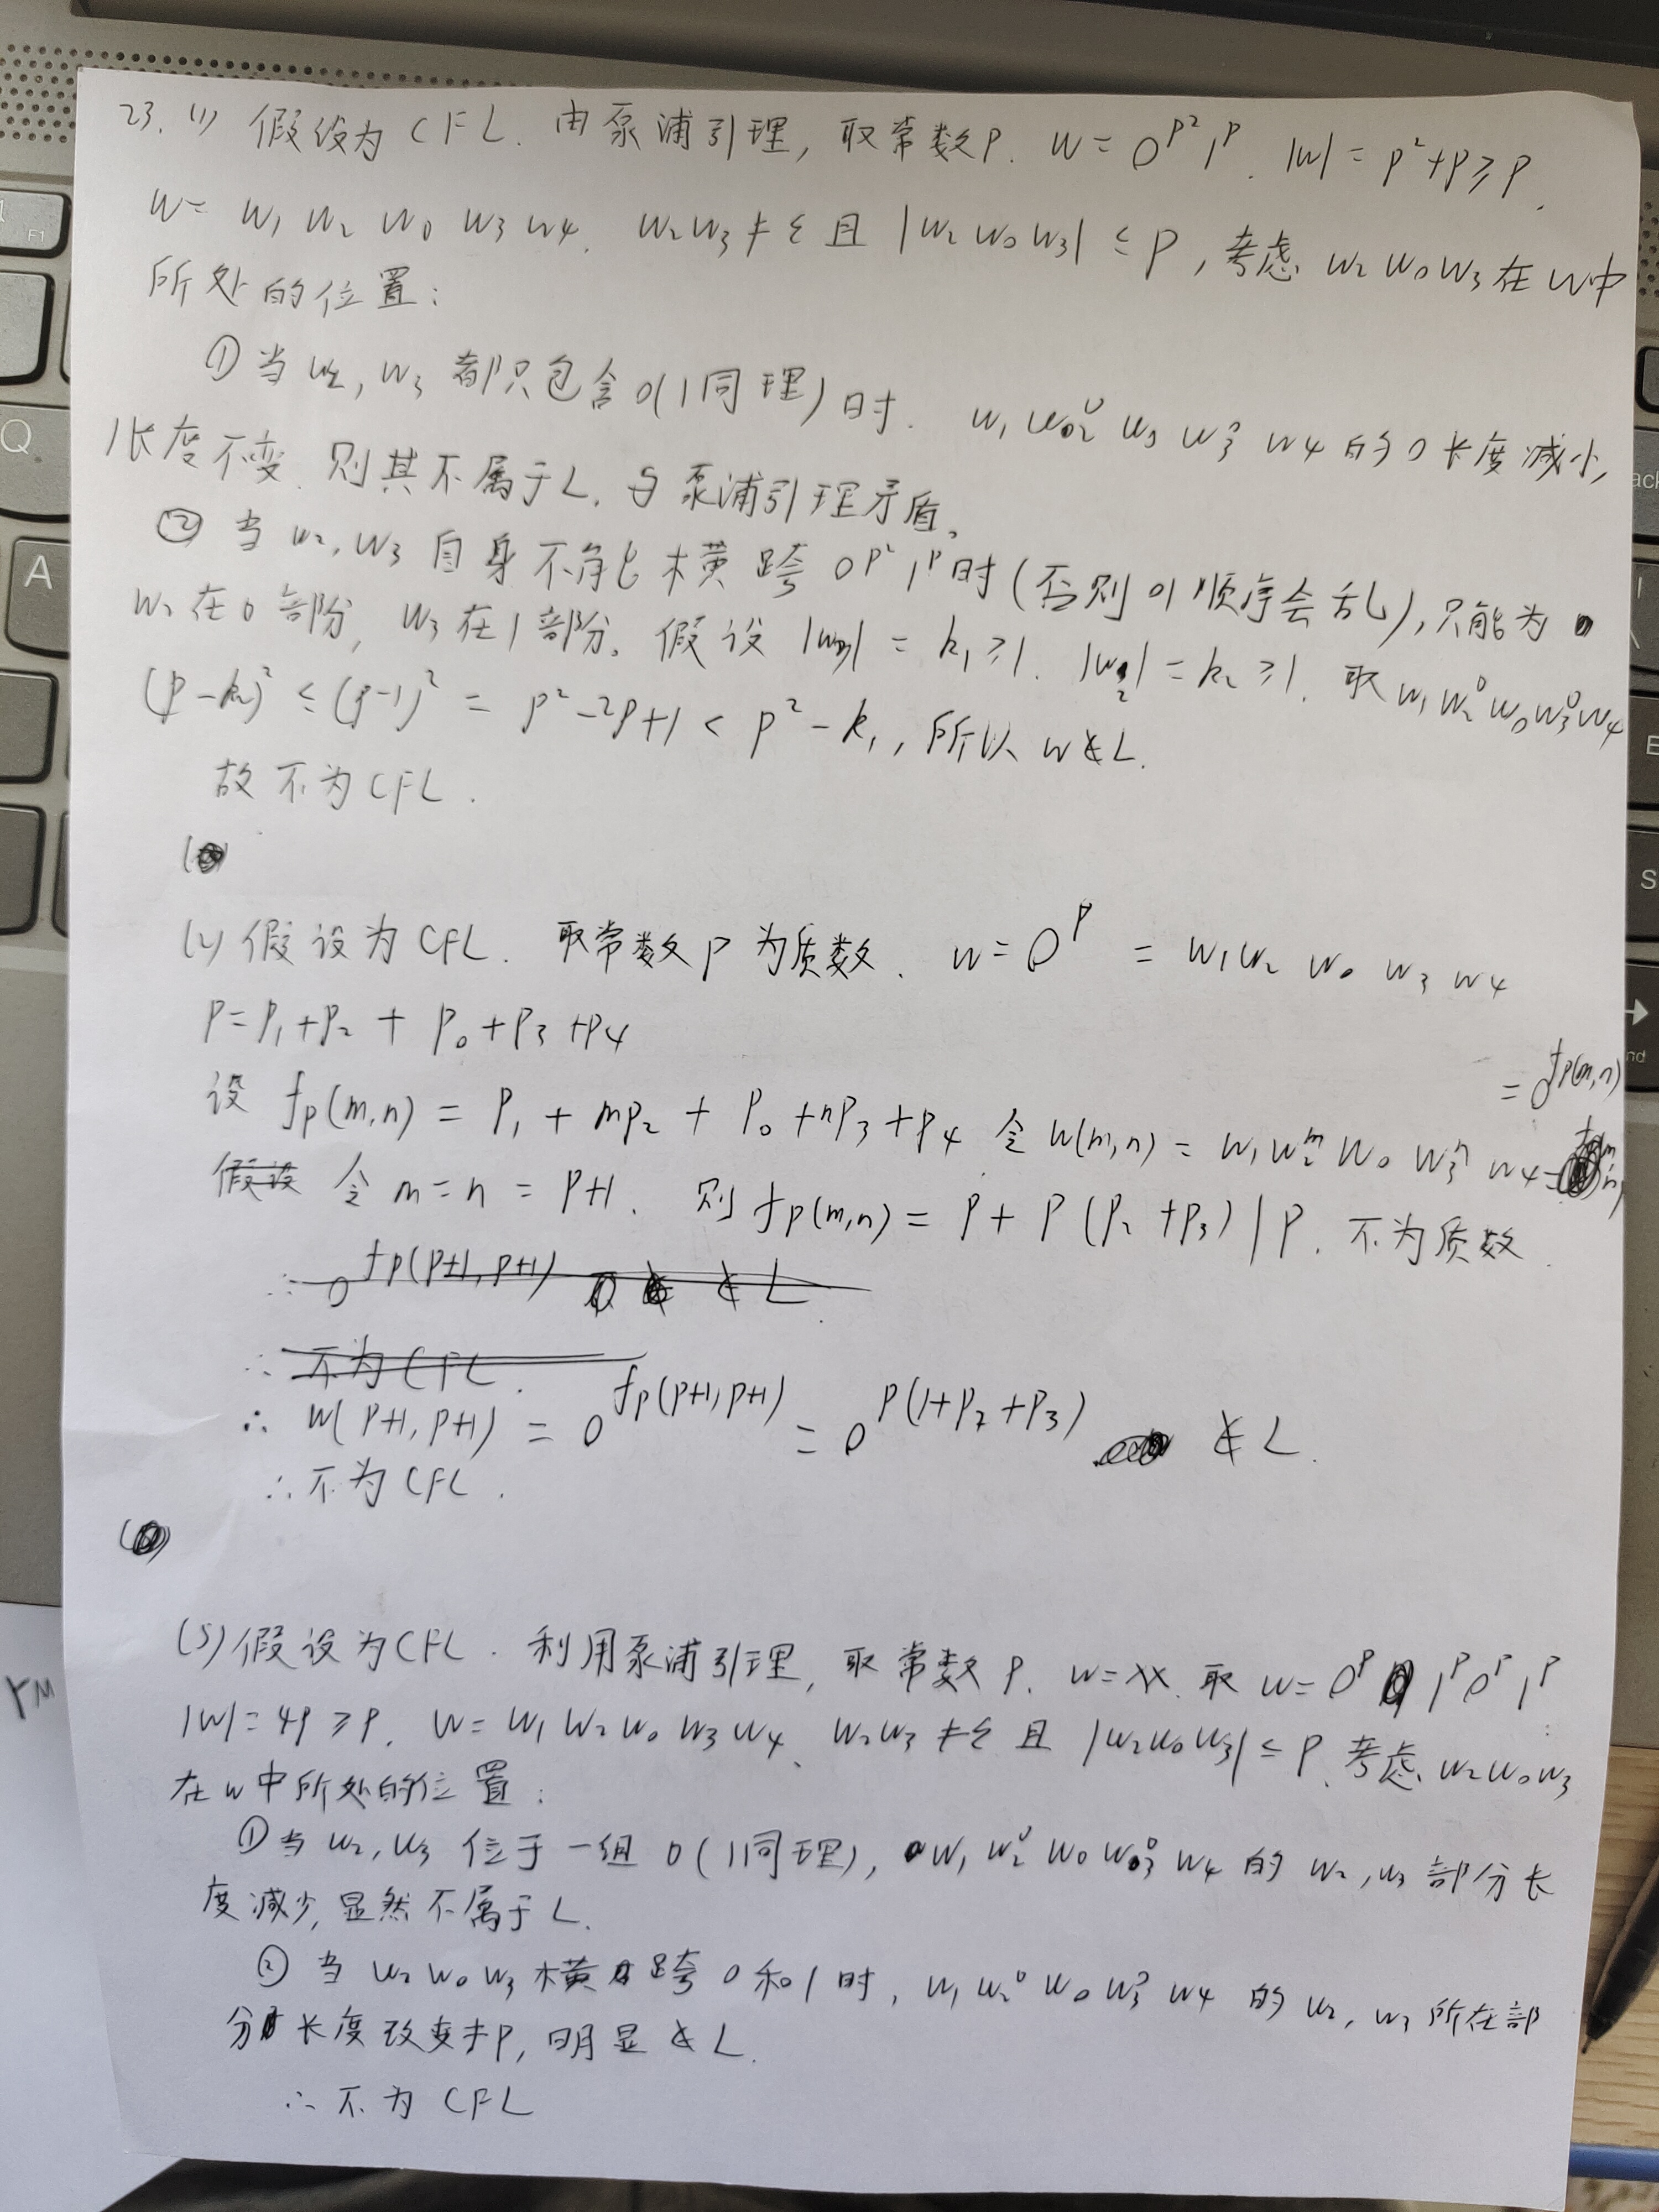 23. (1) 假设为CFL. 由泵浦引理, 取常数P. w = 0^{p²}1^p. |w| = p²+p ≥ p.
w = w₁ w₂ w₀ w₃ w₄. w₂w₃ ≠ ε 且 |w₂w₀w₃| ≤ p, 考虑 w₂w₀w₃ 在w中
所处的位置:
① 当 w₂, w₃ 都只包含0(1同理)时. w₁w₂⁰w₀w₃⁰w₄ 的0长度减小,
1长度不变. 则其不属于L. 与泵浦引理矛盾。
② 当 w₂, w₃ 自身不能横跨 0^{p²}1^p 时(否则01顺序会乱), 只能为
w₂在0部份, w₃在1部分. 假设 |w₂| = k₁ ≥ 1. |w₃| = k₂ ≥ 1. 取 w₁w₂⁰w₀w₃⁰w₄
(p-k₂)² ≤ (p-1)² = p²-2p+1 < p²-k₁, 所以 w∉L.
故不为CFL.
(2) 假设为CFL. 取常数P为质数. w = 0^p = w₁w₂ w₀ w₃ w₄
p = p₁+p₂ + p₀+p₃+p₄
设 f_p(m,n) = p₁ + mp₂ + p₀ + np₃ + p₄ 令 w(m,n) = w₁w₂^m w₀ w₃^n w₄ = 0^{f_p(m,n)}
假设 令 m = n = p+1. 则 f_p(m,n) = p + p(p₂+p₃) | p. 不为质数.
∴ 0^{f_p(p+1,p+1)} ∉ L.
∴ 不为CFL.
∴ w(p+1,p+1) = 0^{f_p(p+1,p+1)} = 0^{p(1+p₂+p₃)} ∉ L.
∴ 不为CFL.
(5) 假设为CFL. 利用泵浦引理, 取常数p. w=xx. 取 w = 0^p 1^p 0^p 1^p
|w| = 4p ≥ p. w = w₁w₂w₀w₃w₄. w₂w₃ ≠ ε 且 |w₂w₀w₃| ≤ p. 考虑 w₂w₀w₃
在w中所处的位置:
① 当 w₂, w₃ 位于一组0(1同理), w₁w₂⁰w₀w₃⁰w₄ 的 w₂, w₃ 部分长
度减少, 显然不属于L.
② 当 w₂w₀w₃ 横跨0和1时, w₁w₂⁰w₀w₃⁰w₄ 的 w₂, w₃ 所在部
分长度改变≠p, 明显∉L.
∴ 不为CFL